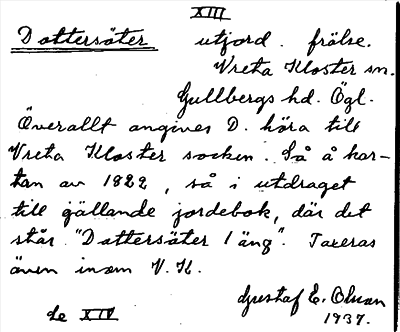 XIII
Dattersäter utjord. frälse.
Vreta Kloster sn.
Gullbergs hd. Ögl.
Överallt angives D. höra till
Vreta Kloster socken. Så å kar-
tan av 1822, så i utdraget
till gällande jordebok, där det
står "Dattersäter 1 äng". Taxeras
även inom V. K.
Gustaf E. Olsson
1937.
se XIV